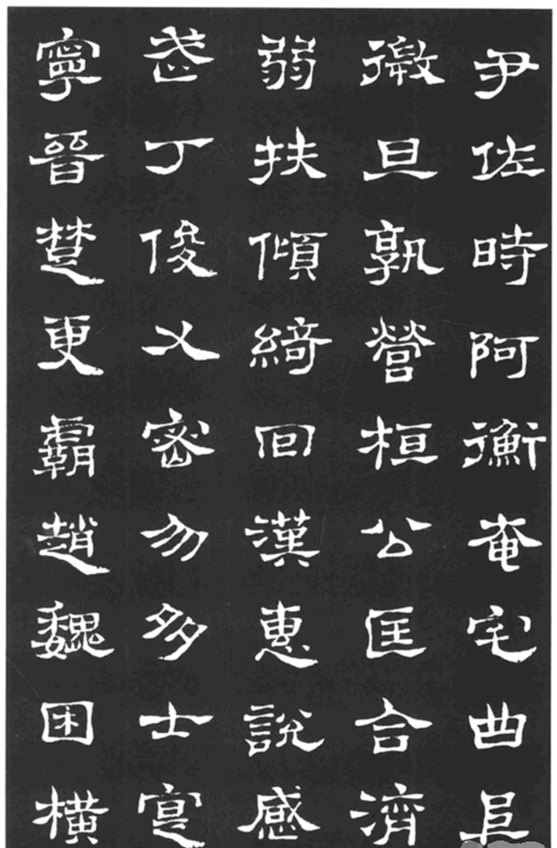 尹佐時阿衡奄宅曲阜
微旦孰營桓公匡合濟
弱扶傾綺回漢惠說感
武丁俊乂密勿多士寔
寧晉楚更霸趙魏困橫